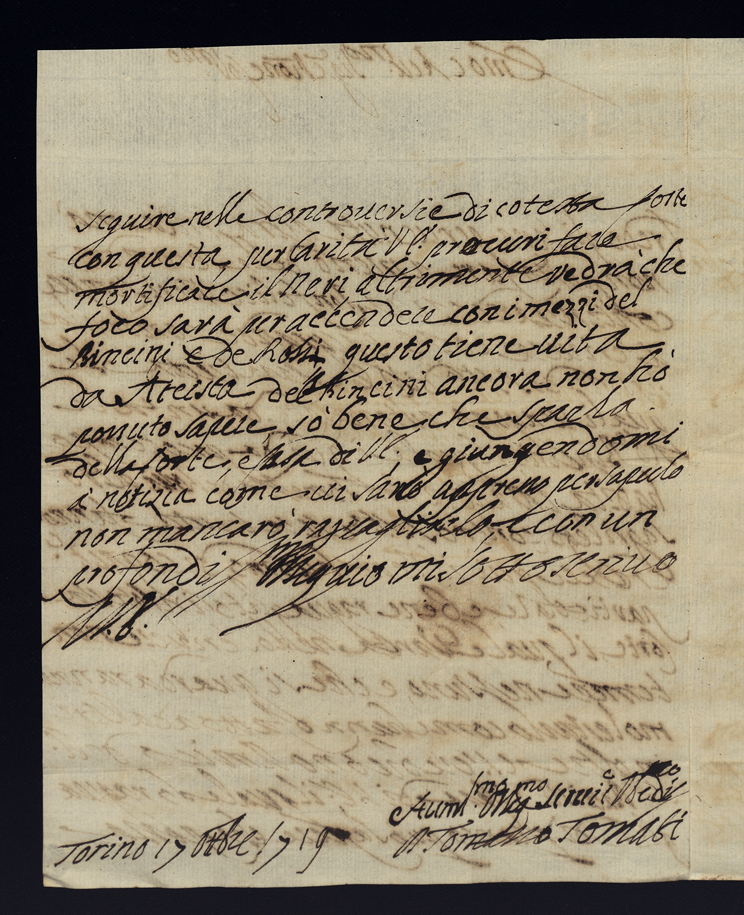 seguire nelle controversie di cotesta Corte
con questa per Carità V.S. procuri fare
mortificare il Neri altrimente vedrà che
foco sarà per accendere con i mezzi del
Rincini e de Rossi questo tiene vita
da Ateista del Rincini ancora non hò
potuto sapere, sò bene che sparla
della Corte, e Casa di V.S. e giungendomi
à notizia come vi sarò appreso per saperlo
non mancarò raguagliarlo, e con un
profondissimo inquio mi sottoscrivo
V.S.
Torino 17 Ottbre 1719
Humilmo Oblgmo Servie
Tomaso Tomati